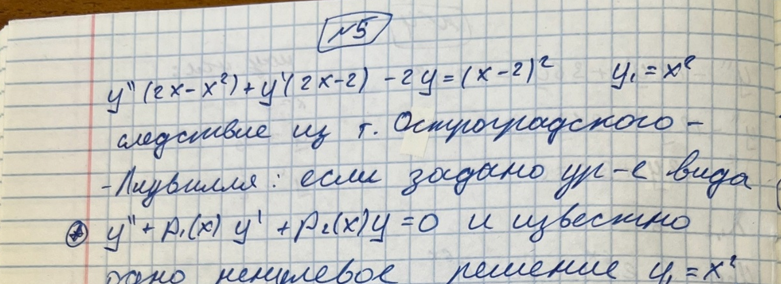 №5
y'' (2x-x²) + y'(2x-2) - 2y = (x-2)² y₁ = x²
следствие из т. Остроградского -
-Лиувилля: если задано ур-е вида
* y'' + p₁(x) y' + p₂(x)y = 0 и известно
одно ненулевое решение y₁ = x²